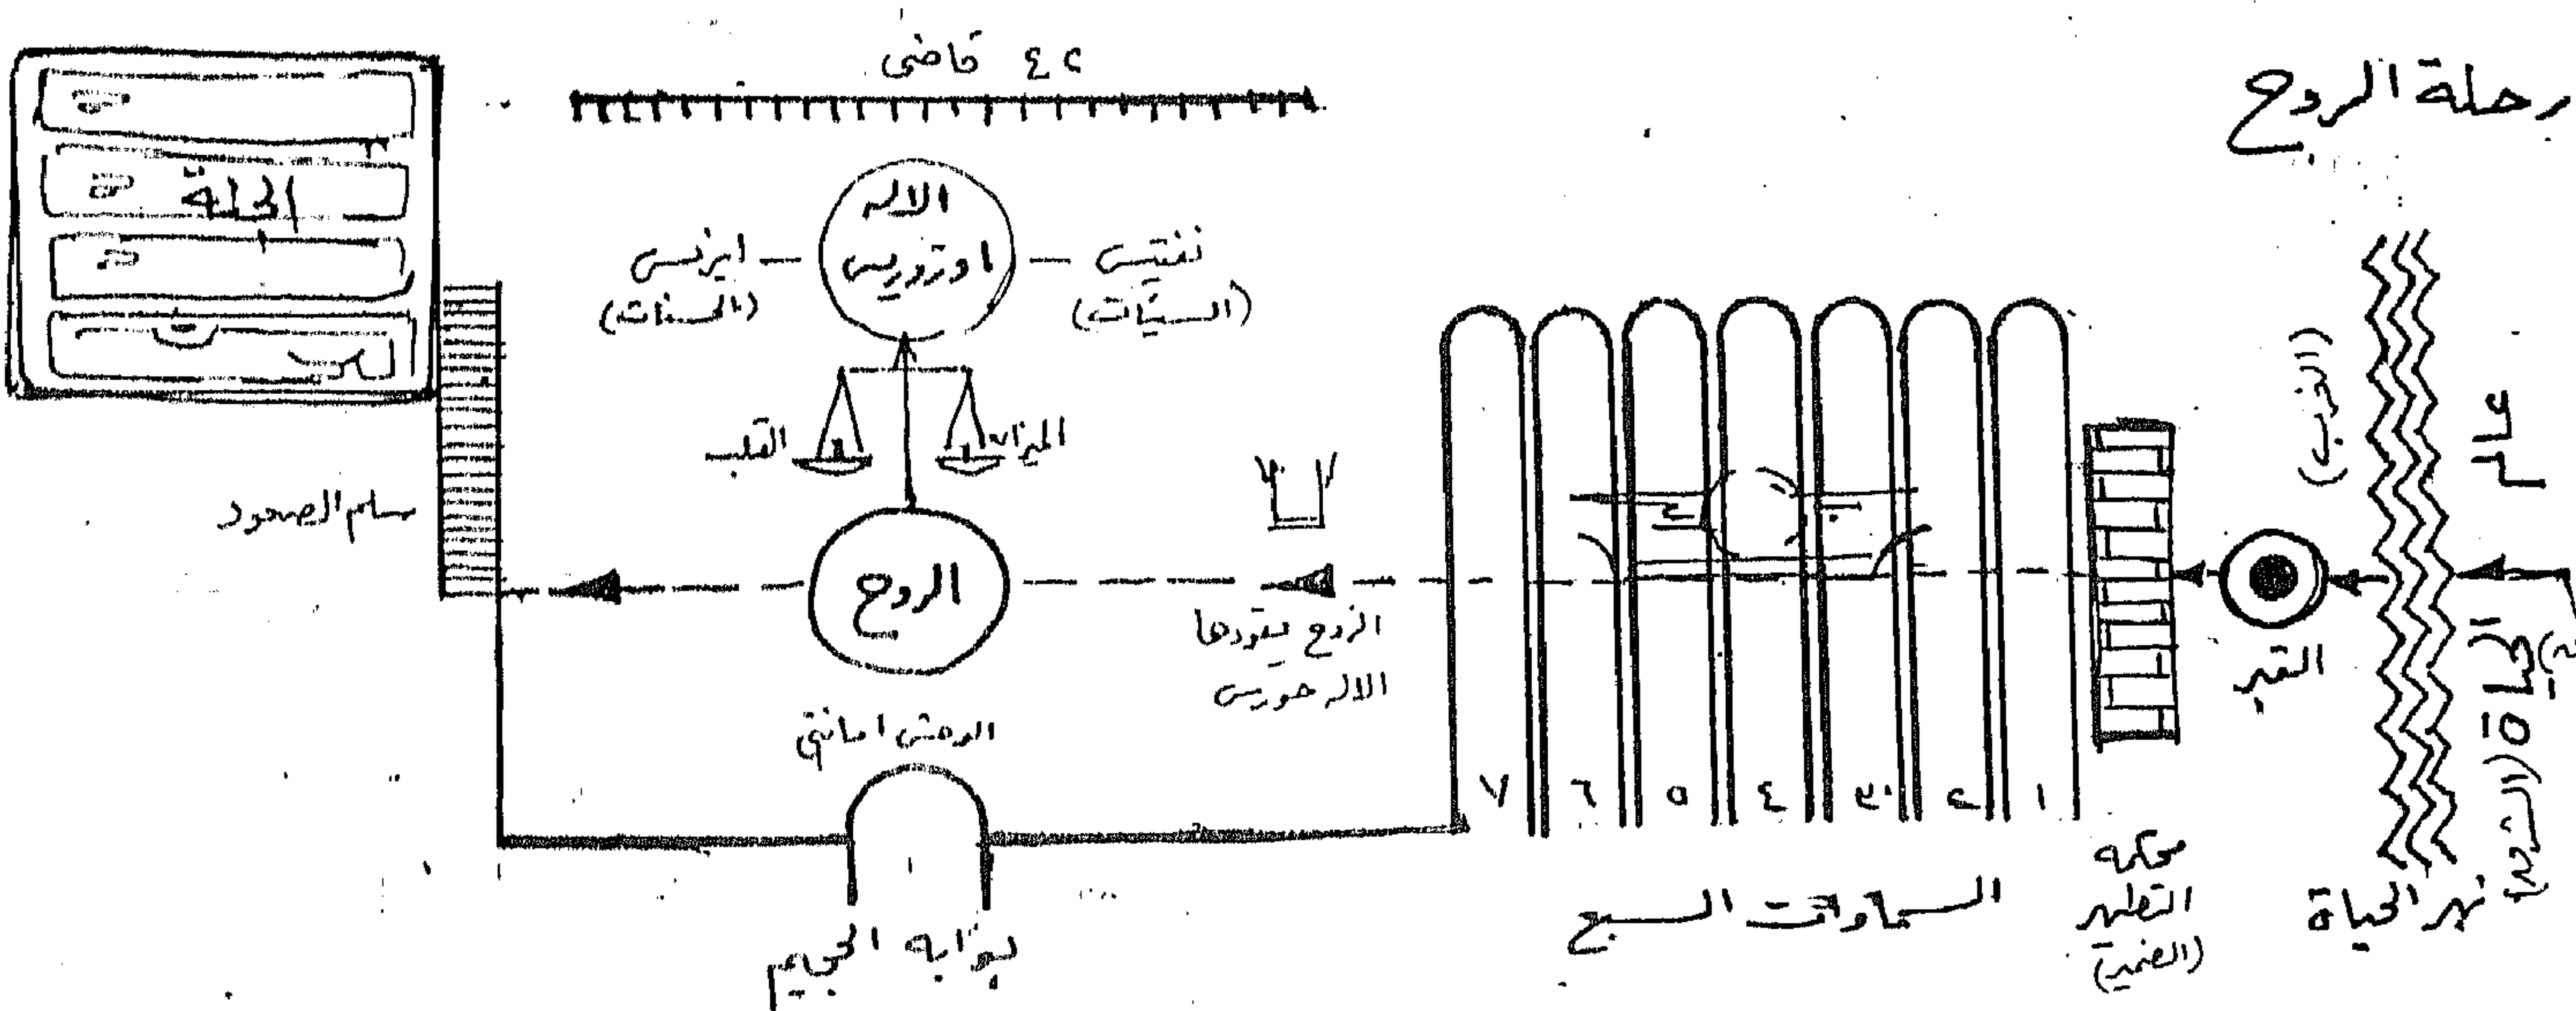 رحلة الروح
٤٢ قاضى
الجنة
الاله
اوزوريس
نفتيس
(السيئات)
ايزيس
(الحسنات)
الميزان
القلب
سلم الصعود
الروح
الروح يقودها
الاله حورس
الوحش امانتى
بوابه الجحيم
١ ٢ ٣ ٤ ٥ ٦ ٧
السماوات السبع
محكمه
التطهر
(الضمير)
القبر
(الغرب)
نهر الحياة
(الشرق)